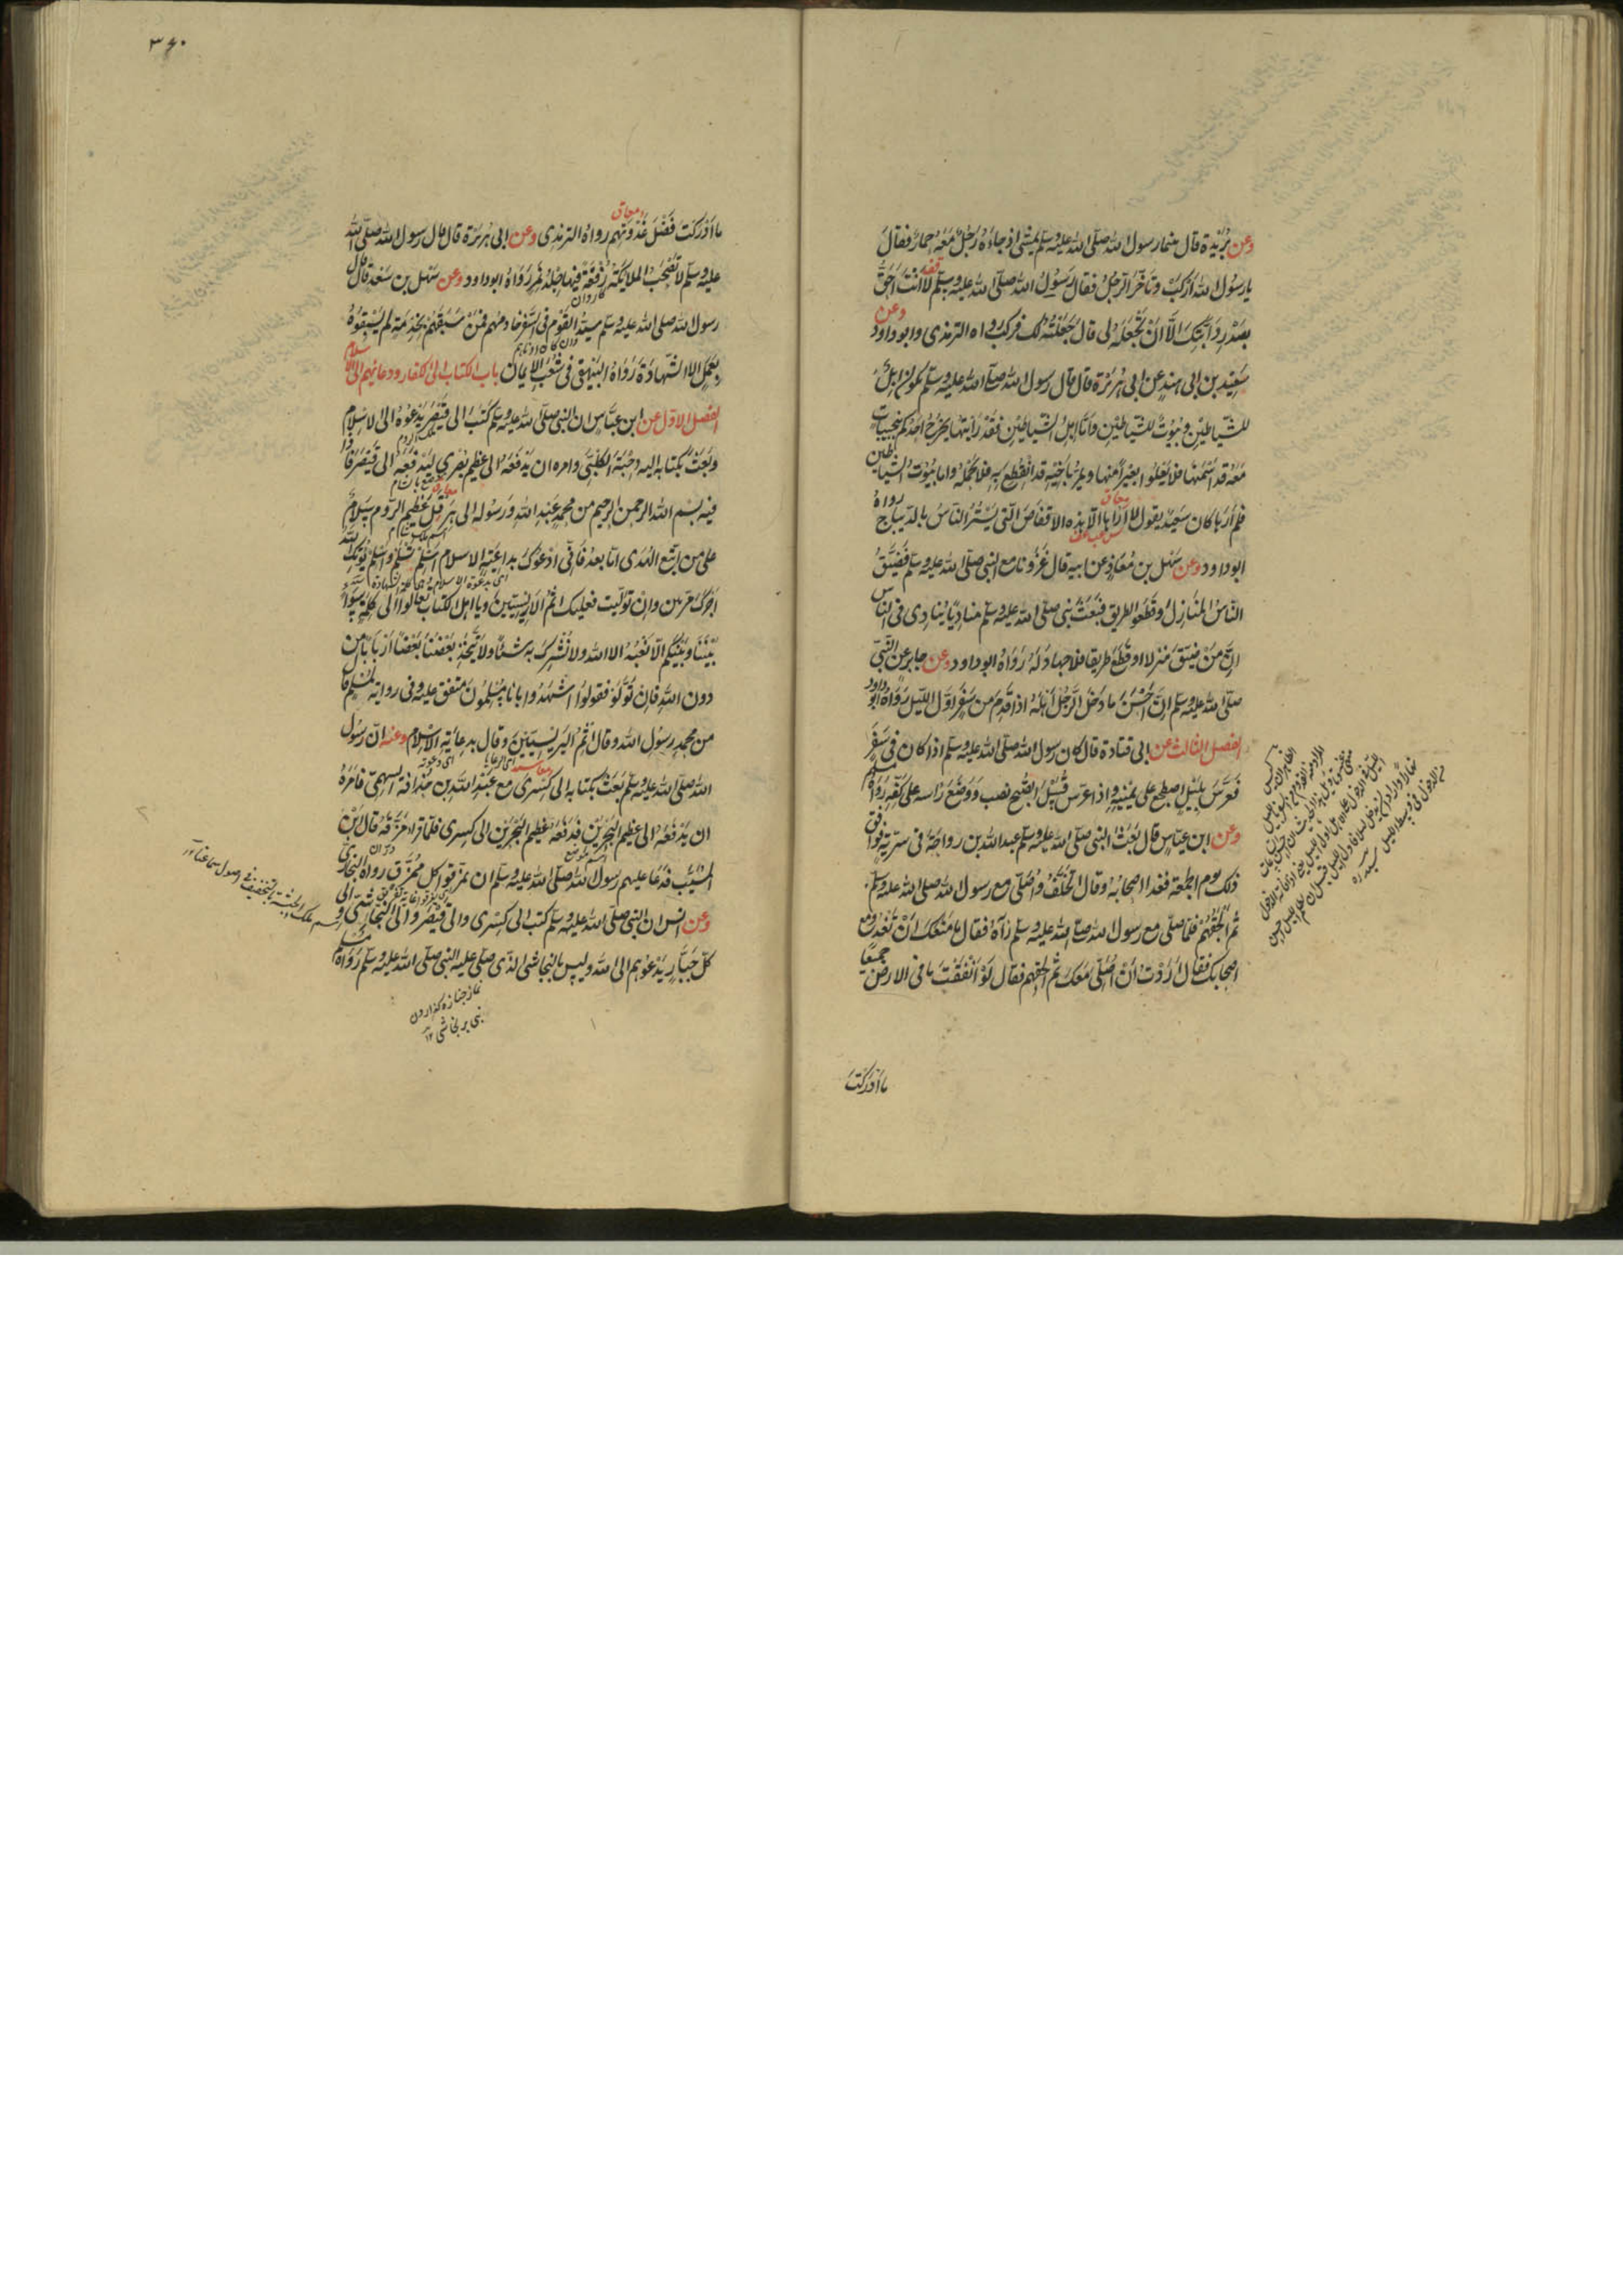 وعن بُرَيْدة قال بينما رسول الله صلّى الله عليه وسلّم يمشي اذ جاءَهُ رَجُلٌ مَعَهُ حمارٌ فقالَ
يا رسولَ الله اركَبْ وتأخّرَ الرجلُ فقال رَسُولُ الله صلّى الله عليه وسلّم لا انتَ احَقُّ
بصَدْرِ دَابَّتِكَ الَّا انْ تَجْعَلَهُ لى قالَ جَعَلْتُهُ لك فركبَ رواه الترمذى وابو داود وعن
سَعِيْد بن ابى هِندٍ عن ابى هُرَيْرة قال قال رسول الله صلّى الله عليه وسلّم تكونُ اِبلٌ
للشياطِيْنِ وبُيوْتٌ للشياطِيْنِ فامّا اِبلُ الشياطيْنِ فقَدْ رَايْتُها يخرُجُ احَدُكم بنَجِيباتٍ
مَعَهُ قد اَسْمَنَها فلا يَعْلُوا بَعِيْرًا منها ويَمُرُّ بأخيْه قد انْقَطَع بِه فلا يَحْمِلُه وامّا بُيُوْتُ الشياطين
فلم اَرَها كانَ سَعيْدٌ يقول لا اُراها الّا هذه الاقفاصَ التى يَسْتُرُ الناسُ بالديباج رواه
ابو داود وعن سَهْل بن مُعَاذٍ عن ابيه قال غَزَوْنا مع النبى صلّى الله عليه وسلّم فضَيَّقَ
الناسُ المنَازِلَ وقَطَعُوا الطريق فبَعَثَ نبى صلّى الله عليه وسلّم مناديًا يُنادِى فى الناس
اِنَّ مَنْ ضيّقَ مَنْزِلا او قَطَعَ طريقا فلا جهادَ لَهُ رَوَاهُ ابو داود وعن جابر عن النبىِّ
صلّى الله عليه وسلّم اِنَّ اَحْسَنَ ما دَخَلَ الرَجُلُ اَهْلَهُ اذا قَدِمَ من سَفَرٍ اَوَّلَ الليْلِ رَوَاهُ ابو داود
الفصل الثالث عن ابى قتادة قال كان رسول الله صلّى الله عليه وسلّم اذا كان فى سَفَرٍ
فعَرَّسَ بليْلٍ اضطجع على يمينهِ واذا عرّس قُبَيْلَ الصُّبح نصب ذراعه ووَضَعَ رَاسه على كفّهِ رواه مسلم
وعن ابن عبّاسٍ قال بَعَثَ النبى صلّى الله عليه وسلّم عبد الله بن رواحة فى سَريّة فوافق
ذلك يوم الجُمْعَة فغدا اصحابُهُ وقال اتخلّفُ واُصَلّى مع رسول الله صلّى الله عليه وسلّم
ثم اَلْحَقُهُمْ فلمّا صلّى مع رسول الله صلّى الله عليه وسلّم رَآهُ فقال ما مَنَعَكَ اَنْ تَغْدُوَ مع
اصحابك فقالَ اَرَدْتُ اَنْ اُصَلّىَ مَعَكَ ثم اَلْحَقَهم فقال لَوْ اَنْفَقْتَ ما فى الارض جميعًا
ما اَدْرَكْتَ
۳۶۰
ما اَدْرَكْتَ فَضْلَ غَدْوَتِهم رواهُ الترمذى وعن ابى هُرَيْرة قال قال رسول الله صلّى الله
عليه وسلّم لا تَصْحَبُ الملائِكَةُ رُفْقَةً فيها جِلْدُ نَمِرٍ رَوَاهُ ابو داود وعن سَهْل بن سَعْد قال قال
رسول الله صلّى الله عليه وسلّم سيّدُ القَوْمِ فى السَفَرِ خادمُهم فمَنْ سَبَقَهُمْ بخِدْمَةٍ لم يَسْبِقُوْهُ
بعَمَلٍ الّا الشهادَةَ رَوَاهُ البَيْهَقى فى شُعَب الايمان باب الكتاب الى الكفار ودعائهم الى الاسلام
الفصل الاوّل عن ابن عبّاسٍ ان النبى صلّى الله عليه وسلّم كتَبَ الى قَيْصَرَ يَدْعُوْهُ الى الاسْلام
وبَعَثَ بكتابهِ اليه دِحْيَةَ الكَلْبِىَّ وامره ان يَدْفَعَهُ الى عظيم بُصْرى ليَدْفَعَهُ الى قَيْصَرَ فاذا
فيه بسم الله الرحمن الرحيم من محمّدٍ عَبْدِ الله ورَسُوْله الى هِرَقْلَ عَظيم الروم سلامٌ
على من اتبع الهُدَى امّا بعدُ فاِنّى ادْعُوْكَ بداعِيَةِ الاسلام اَسْلِمْ تَسْلَمْ واَسْلِمْ يُؤْتِكَ الله
اَجْرَكَ مَرّتيْن وانْ تولّيت فعليك اثمُ الاَرِيْسِيّينَ ويا اهل الكتاب تعالَوا الى كلمة سواءٍ
بَيْنَنَا وبَيْنَكم الّا نَعْبُدَ الا الله ولا نُشْرِكَ به شيئًا ولا يَتّخِذَ بَعْضُنا بَعْضًا اَرْبَابًا من
دون الله فاِن تَوَلَّوْ فقولُوا اشهَدُوا بانّا مُسْلِمُونَ متفق عليه وفى رواية لمسلم قال
من محمّدٍ رسولِ الله وقال اثمُ اليَرِيْسِيّيْنَ وقال بدِعايَةِ الاسْلام وعنه انّ رَسُوْلَ
الله صلّى الله عليه وسلّم بَعَثَ بكتابه الى كِسْرَى مع عَبْدِ الله بن حُذافة السهمىّ فامَرَهُ
ان يَدْفَعَهُ الى عظيم البَحْرَيْنِ فدَفَعَهُ عظيم البَحْرَيْنِ الى كسرى فلمّا قرأ مزّقَهُ قال ابْنُ
المُسَيَّب فدَعَا عليهم رسولُ الله صلّى الله عليه وسلّم ان يمزّقوا كلّ مُمَزَّق رواه البخارىّ
وعن انسٍ ان النبى صلّى الله عليه وسلّم كتب الى كِسْرى والى قَيْصَرَ والى النجاشى والى
كلّ جَبّارٍ يَدْعُوْهم الى الله وليس بالنجاشى الذى صلّى عليه النبى صلّى الله عليه وسلّم رَوَاهُ مسلم
نماز جنازه گذاردن
نبى بر نجاشى ۱۲